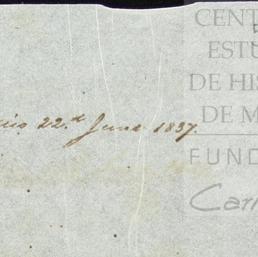 CENT
ESTU
DE HIS
DE M
22.d June 1837.
FUND
Car